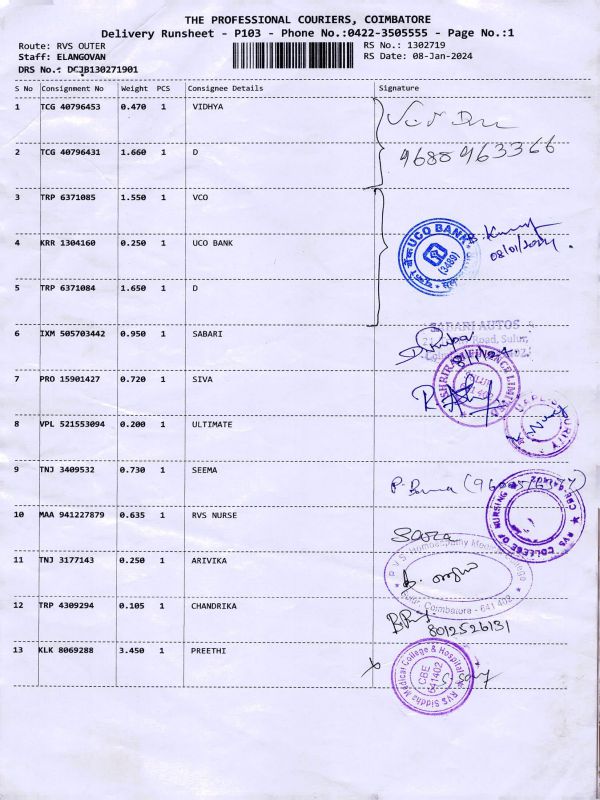 THE PROFESSIONAL COURIERS, COIMBATORE
Delivery Runsheet - P103 - Phone No.:0422-3505555 - Page No.:1
Route: RVS OUTER
Staff: ELANGOVAN
DRS No.: DCJB130271901
RS No.: 1302719
RS Date: 08-Jan-2024
S No Consignment No Weight PCS Consignee Details Signature
1 TCG 40796453 0.470 1 VIDHYA
2 TCG 40796431 1.660 1 D
9688963366
3 TRP 6371085 1.550 1 VCO
4 KRR 1304160 0.250 1 UCO BANK
UCO BANK
(3489)
08/01/2024
5 TRP 6371084 1.650 1 D
6 IXM 505703442 0.950 1 SABARI
SABARI AUTOS
Road, Sulur,
8/1/24
7 PRO 15901427 0.720 1 SIVA
SHRIRAM FINANCE LIMITED
8 VPL 521553094 0.200 1 ULTIMATE
SECURITY
9 TNJ 3409532 0.730 1 SEEMA
10 MAA 941227879 0.635 1 RVS NURSE
RVS COLLEGE OF NURSING
11 TNJ 3177143 0.250 1 ARIVIKA
R V S Homoeopathy Medical College
Sulur, Coimbatore - 641 402
12 TRP 4309294 0.105 1 CHANDRIKA
8012526131
13 KLK 8069288 3.450 1 PREETHI
RVS Siddha Medical College & Hospital
CBE
641402